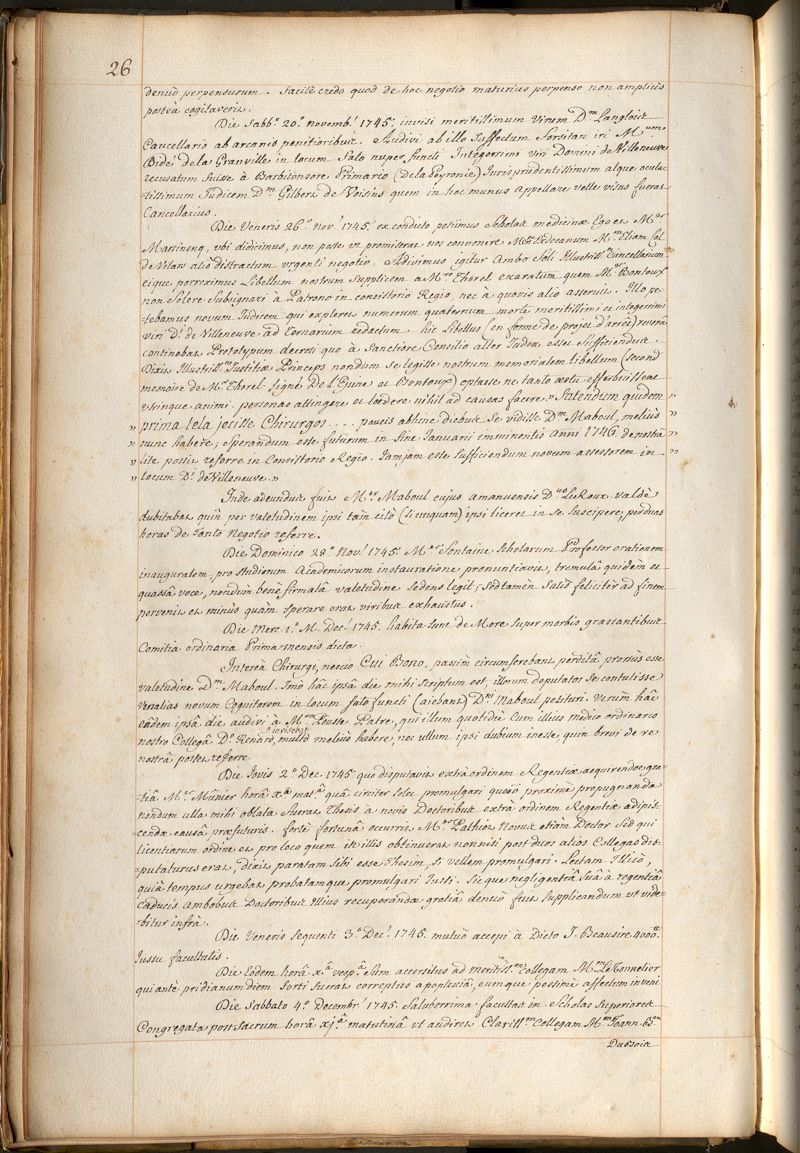 26
denuò perpensurum. facilè credo quod de hoc negotio maturius perpenso non amplius
posteà cogitaverit.
Die Sabb.º 20.º novemb.' 1745. invisi meritissimum virum D.m Langlois
Cancellario ab arcanis penitioribus. Audivi ab illo suffectum Sorsitan iri M.um
Bidé de la Granville in locum fato nuper functi Integerrimi viri Domini de Villeneuve
recusatum fuisse à Barbitonsore Primario (De la Peyronie) Jurisprudentissimum atque ocula-
-tissimum Judicem D.m Gilbert de Voisins quem in hoc munus appellare velle visus fuerat
Cancellarius.
Die Veneris 26.º nov.' 1745. ex condicto petimus Scholas medicinæ Ego et M.er
Martinenq, ubi didicimus, non posse ut promiserat nos convenire M.um Exdecanum M.m Eliam Col
de Vilars alio distractum urgenti negotio. Adivimus igitur Ambo Soli Illustriss.m Cancellarium
eique porreximus Libellum nostrum Supplicem a M.ro Theret exaratum quem M.er Bontoux
non Solere Subsignari à Patrono in consistorio Regio, nec à quovis alio asseruit. Illo pe-
-tebamus novum Judicem qui expleret numerum quaternum morte meritissimi et integerrimi
viri D.i de Villeneuve ad Ternarium redactum. hic Libellus (en forme de projet d'arrêt) reverà
continebat Prototypum decreti quo à Sanctiore Consilio alter Judex esset Sufficiendus.
Dixit Illustriss.m Justitiæ Princeps nondum Se legisse nostrum memorialem libellum (second
memoire de M.e Theret signé De l'Epine et Bontoux) optasse ne tanto æstu efferbuissent
utrinque animi. personas attingere et lædere nihil ad causas facere „ fatendum quidem
„ prima tela jecisse Chirurgos .... paucis abhinc diebus Se vidisse D.m Maboul, meliùs „
„ nunc habere; Sperandum esse futurum in fine Januarii imminentis anni 1746. de nostra „
„ lite posse referre in Consistorio Regio. Jamjam esse Sufficiendum novum assessorem in „
„ locum D.i de Villeneuve. „
Inde adeundus fuit M.er Maboul cujus amanuensis D.nus Le Roux valdè
dubitabat quin per valetudinem ipsi tam citò (si unquam) ipsi liceret in Se Suscipere, per duas
horas de tanto Negotio referre.
Die Dominico 28.º Nov.' 1745. M.er Fontaine Scholarum Professor orationem
inauguralem, pro studiorum Academicorum instauratione pronuntiavit, tremulâ quidem et
quassâ voce, nondum benè firmatâ valetudine Sedens legit; Sed tamen Satis feliciter ad finem
pervenit et minùs quàm sperare erat viribus exhaustus.
Die Merc. 1.º M. Dec.' 1745. habita sunt de More Super morbis grassantibus
Comitia ordinaria Prima mensis dicta.
Intereà Chirurgi, nescio Cui Bono, passim circumferebant perditâ prorsùs esse
valetudine D.m Maboul. Imò hâc ipsâ die mihi Scriptum est, illorum deputatos Se contulisse
Versalias novum Cognitorem in locum fato functi (aiebant) D.ni Maboul petituri. Verùm hâc
eâdem ipsâ die audivi à M.ro Pousse Patre, qui illum quotidiè Cum illius medico ordinario
nostro Collegâ D.º Renard, invisebat multò meliùs habere, nec ullum ipsi dubium inesse, quin brevi de re
nostrâ posset referre.
Die Jovis 2.º Dec. 1745. quo disputavit extrà ordinem Regentiæ acquirendæ gra-
-tiâ M.er Munier horâ X.â mat.â quâ circiter Solet promulgari quæstio proximè propugnanda
nondum ulla mihi oblata fuerat Thesis à novis Doctoribus extrà ordinem Regentiæ adipis-
-cendæ causâ præfuturis. fortè fortunâ occurrit M.er Pathiot Novus etiam Doctor Sed qui
licentiarum ordine et pro loco quem in illis obtinuerat nonnisi post duos alios Collegas dis-
-putaturus erat, dixit paratam sibi esse Thesim, Si vellem promulgari. Lectam Illicò,
quià tempus urgebat probatamque promulgari Jussi. Sicque negligentiâ Suâ à regentiâ
caducis ambobus Doctoribus Illius recuperandæ gratiâ denuò fuit Supplicandum ut vide-
-bitur infrà.
Die Veneris Sequenti 3.º Dec.' 1745. mutuò accepi à Dicto J. Beausire 4000.tt
Jussu facultatis.
Die Eodem horâ X.â vesp.â Sum accersitus ad meritiss.um Collegam M.m Le Tonnelier
qui antè pridianum diem Sorti fuerat correptus apoplexiâ, eumque pessimè affectum inveni
Die Sabbato 4.º Decembr.' 1745. Saluberrima facultas in Scholas Superiores
Congregata post Sacrum horâ XJ.â matutinâ ut audiret Clariss.m Collegam M.m Joann. B.am
Dubois